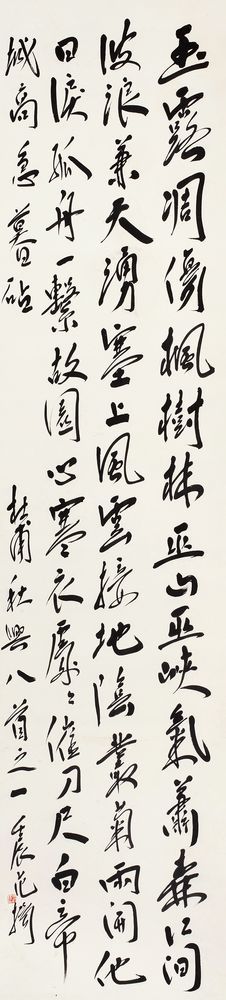 玉露凋傷楓樹林巫山巫峽氣蕭森江間
波浪兼天湧塞上風雲接地陰叢菊兩開他
日淚孤舟一繫故園心寒衣處〻催刀尺白帝
城高急暮砧
杜甫秋興八首之一 壬辰范